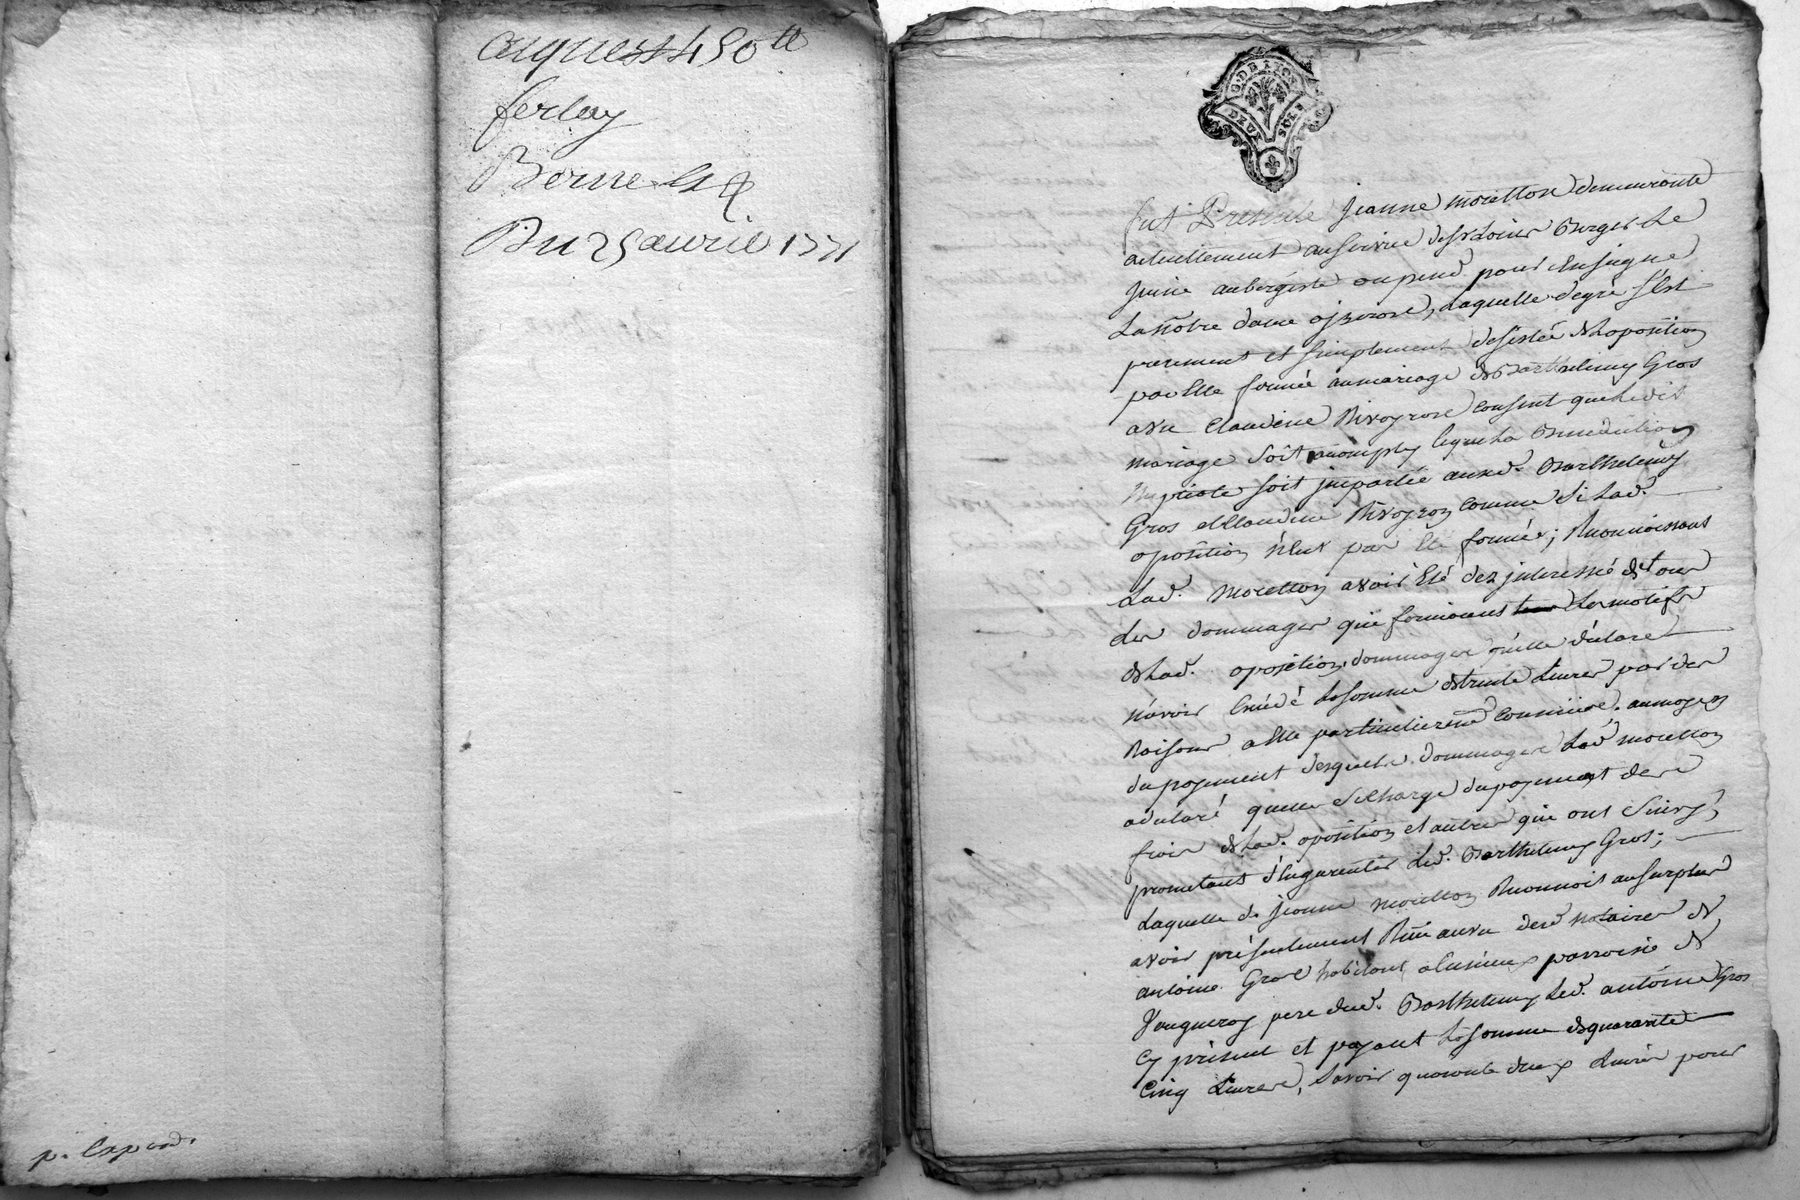 aquest 450 ll
ferlay
Berne
Du 25 avril 1771
p. Expéd.
G. DE LYON
DEUX SOLS
fut Presente Jeanne Moretton demeurante
actuellement au service de Sr Loüis Berger le
jeune aubergiste ou pend pour Enseigne
La Nôtre dame, Laquelle degré s'est
purement et simplement desistée de Loposition
par Elle formée au mariage de Barthelemy Gros
avec Claudine Rivoyron consent que Ledit
mariage soit accomply & que La Benediction
Nuptiale soit impartie auxd. Barthelemy
Gros et Claudine Rivoyron comme si Lad.
oposition n'Eut par Eté formée; Reconnoissant
Lad. Moretton avoir Eté dez interessé de tous
Les dommages qui formoient Les motifs
de Lad. oposition, dommages qu'elle déclare
n'avoir Excédé La somme de trente Livres par des
Raisons a Elle particulierem. connües. au moyen
du payement desquels dommages Lad. Moretton
a declaré quelle se charge du payement des
frais de Lad. oposition et autres qui ont suivy,
promettant d'En garentir Led. Barthelemy Gros;
Laquelle d. Jeanne Moretton Reconnoit au surplus
avoir présentement Reçu au vu desd. Notaires de
antoine Gros habitant parroisse de
pere dud. Barthelemy Led. antoine Gros
Cy présent et payant La somme de quarante
Cinq Livres, Savoir quarante deux Livres pour